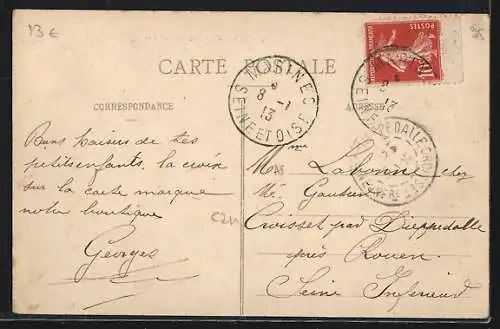 13 €
95
CARTE POSTALE
CORRESPONDANCE
ADRESSE
SEINE ET OISE
8 - 1
13
POSTES
10
Bons baisers de tes
petits enfants. la croix
sur la carte marque
notre boutique
Georges
C2M
Mme Labonne chez
Mr. Gautier
Croisset par Dieppedalle
près Rouen
Seine Inférieure